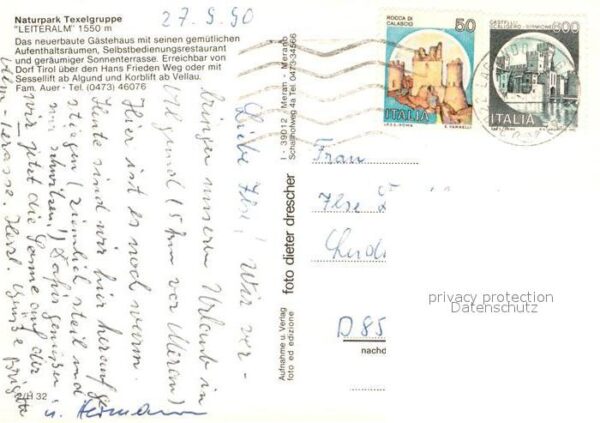 Naturpark Texelgruppe
"LEITERALM" 1550 m
Das neuerbaute Gästehaus mit seinen gemütlichen
Aufenthaltsräumen, Selbstbedienungsrestaurant
und geräumiger Sonnenterrasse. Erreichbar von
Dorf Tirol über den Hans Frieden Weg oder mit
Sessellift ab Algund und Korblift ab Vellau.
Fam. Auer - Tel. (0473) 46076
27.9.90
Liebe Ilse! Wir ver-
bringen unseren Urlaub in
Algund (5 km vor Meran)
Hier ist es noch warm.
Heute sind wir hier heraufge-
stiegen (ziemlich steil und
wir schwitzen!) Dafür genießen
wir jetzt die Sonne auf der
Alm-Terasse. Herzl. Grüße Brigitte
u. Hermann
2/H 32
Aufnahme u. Verlag
foto ed edizione
foto dieter drescher
I - 39012 Meran - Merano
Schallhofweg 4a Tel. 0473-34566
ROCCA DI
CALASCIO
50
ITALIA
I.P.Z.S. - ROMA
E. VANGELLI
CASTELLO
SCALIGERO - SIRMIONE
600
ITALIA
Frau
Ilse
D 85
nachd
privacy protection
Datenschutz